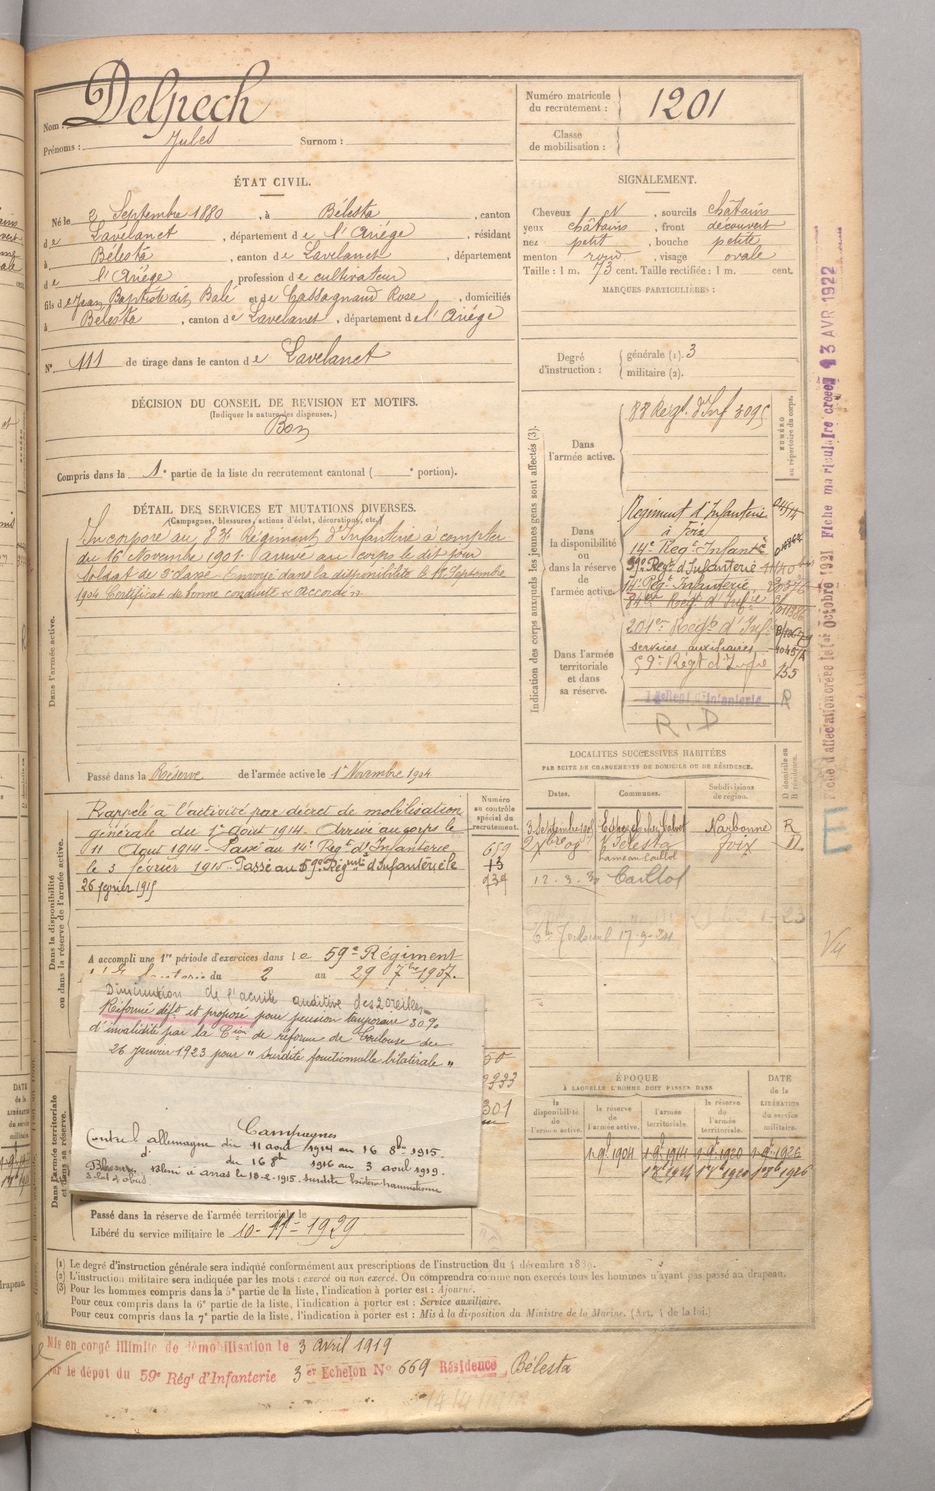 Nom : Delpech
Prénoms : Jules Surnom :
ÉTAT CIVIL.
Né le 2 Septembre 1880, à Bélesta, canton
de Lavelanet, département de l'Ariège, résidant
à Bélesta, canton de Lavelanet, département
de l'Ariège, profession de cultivateur
fils de Jean Baptiste dit Balé et de Cassagnaud Rose, domiciliés
à Bélesta, canton de Lavelanet, département de l'Ariège
N° 111 de tirage dans le canton de Lavelanet
DÉCISION DU CONSEIL DE REVISION ET MOTIFS.
(Indiquer la nature des dispenses.)
Bon
Compris dans la 1e partie de la liste du recrutement cantonal ( e portion).
DÉTAIL DES SERVICES ET MUTATIONS DIVERSES.
(Campagnes, blessures, actions d'éclat, décorations, etc.)
Dans l'armée active.
Incorporé au 83e Régiment d'Infanterie à compter
du 16 Novembre 1901. arrivé au corps le dit jour
soldat de 2e classe. Envoyé dans la disponibilité le 18 Septembre
1904. Certificat de bonne conduite « Accordé »
Passé dans la Réserve de l'armée active le 1er Novembre 1904
Dans la disponibilité ou dans la réserve de l'armée active.
Rappelé à l'activité par décret de mobilisation
générale du 1er Août 1914. Arrivé au corps le
11 Août 1914. Passé au 14e Régt d'Infanterie
le 3 février 1915. Passé au 59e Régiment d'Infanterie le
26 février 1915
Numéro au contrôle spécial du recrutement.
659
13
939
A accompli une 1re période d'exercices dans le 59e Régiment
du 2 au 29 7bre 1907.
Diminution de l'acuité auditive des 2 oreilles
Réformé déft et proposé pour pension temporaire 30%
d'invalidité par la Cion de réforme de Toulouse du
26 Janvier 1923 pour "surdité fonctionnelle bilatérale"
50
301
Campagnes
Contre l'allemagne du 11 août 1914 au 16 8bre 1915.
d° du 16 8bre 1916 au 3 avril 1919.
Blessé à arras le 18-2-1915. surdité
Dans l'armée territoriale et dans sa réserve.
Passé dans la réserve de l'armée territoriale le
Libéré du service militaire le 10-11-1929
(1) Le degré d'instruction générale sera indiqué conformément aux prescriptions de l'instruction du 4 décembre 1889.
(2) L'instruction militaire sera indiquée par les mots : exercé ou non exercé. On comprendra comme non exercés tous les hommes n'ayant pas passé au drapeau.
(3) Pour les hommes compris dans la 5e partie de la liste, l'indication à porter est : Ajourné.
Pour ceux compris dans la 6e partie de la liste, l'indication à porter est : Service auxiliaire.
Pour ceux compris dans la 7e partie de la liste, l'indication à porter est : Mis à la disposition du Ministre de la Marine. (Art. 4 de la loi.)
Mis en congé illimité de démobilisation le 3 avril 1919
par le dépot du 59e Régt d'Infanterie 3er Echelon N° 669 Résidence Bélesta
Numéro matricule du recrutement : 1201
Classe de mobilisation :
SIGNALEMENT.
Cheveux N, sourcils châtains
yeux châtains, front découvert
nez petit, bouche petite
menton rond, visage ovale
Taille : 1 m. 73 cent. Taille rectifiée : 1 m. cent.
MARQUES PARTICULIÈRES :
Degré d'instruction : générale (1). 3
militaire (2).
Indication des corps auxquels les jeunes gens sont affectés (3).
NUMÉRO au répertoire du corps.
Dans l'armée active.
83 Régt. d'Inf 3095
Dans la disponibilité ou dans la réserve de l'armée active.
Régiment d'Infanterie
à Foix
14e Reg. Infantie
59e Régt d'Infanterie
14e Régt Infanterie
Dans l'armée territoriale et dans sa réserve.
201er Regt d'Infie
services auxiliaires
59e Régt d'Infie 155
Régiment d'Infanterie R
R.D
LOCALITÉS SUCCESSIVES HABITÉES
PAR SUITE DE CHANGEMENTS DE DOMICILE OU DE RÉSIDENCE.
Dates. Communes. Subdivisions de région. D domicile ou R résidence.
Narbonne R
Bélesta foix
hameau Caillol
12.3.30 Caillol
Toulouse 17-9-24
ÉPOQUE
À LAQUELLE L'HOMME DOIT PASSER DANS
la disponibilité de l'armée active. la réserve de l'armée active. l'armée territoriale. la réserve de l'armée territoriale. DATE de la LIBÉRATION du service militaire.
1-9e 1904 1-9e 1914 1-9e 1920 1-9e 1926
Fiche d'affectation créée le 1er Octobre 1921 Fiche matriculaire créée 13 AVR 1922